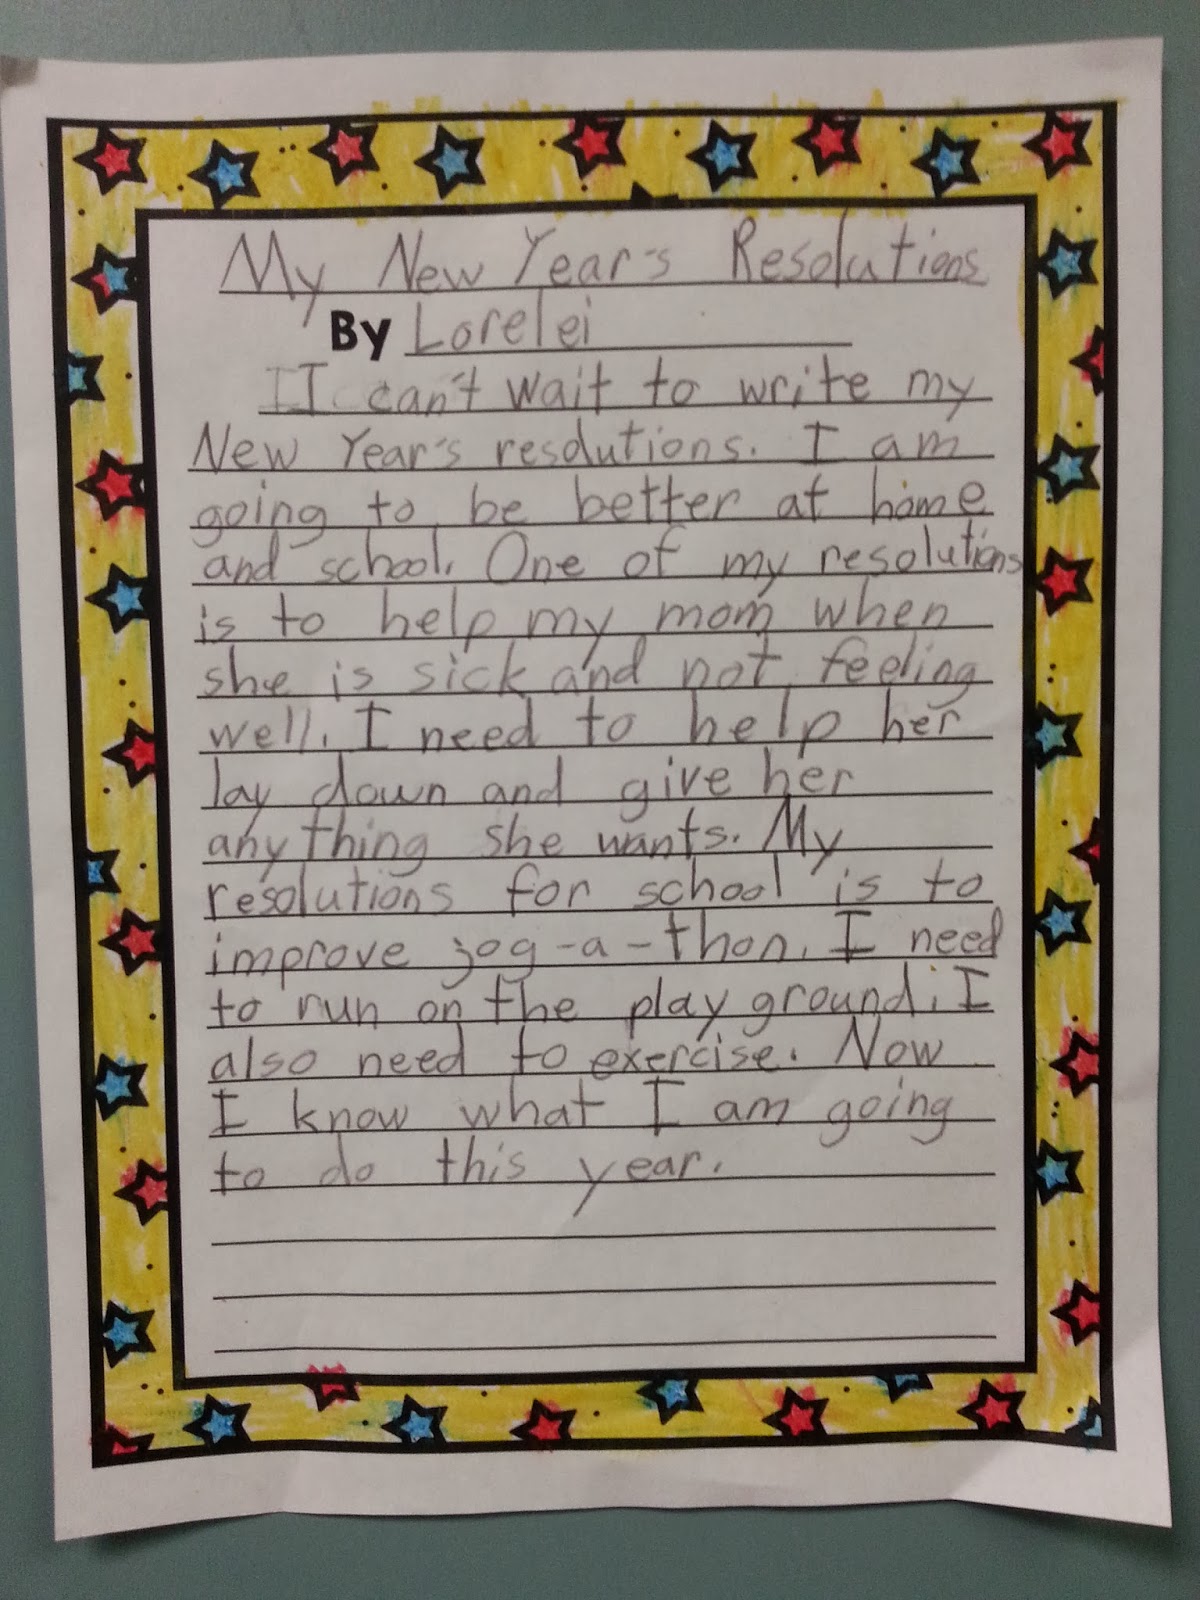 My New Year's Resolutions
By Lorelei
I can't wait to write my
New Year's resolutions. I am
going to be better at home
and school. One of my resolutions
is to help my mom when
she is sick and not feeling
well. I need to help her
lay down and give her
anything she wants. My
resolutions for school is to
improve jog-a-thon. I need
to run on the play ground. I
also need to exercise. Now
I know what I am going
to do this year.